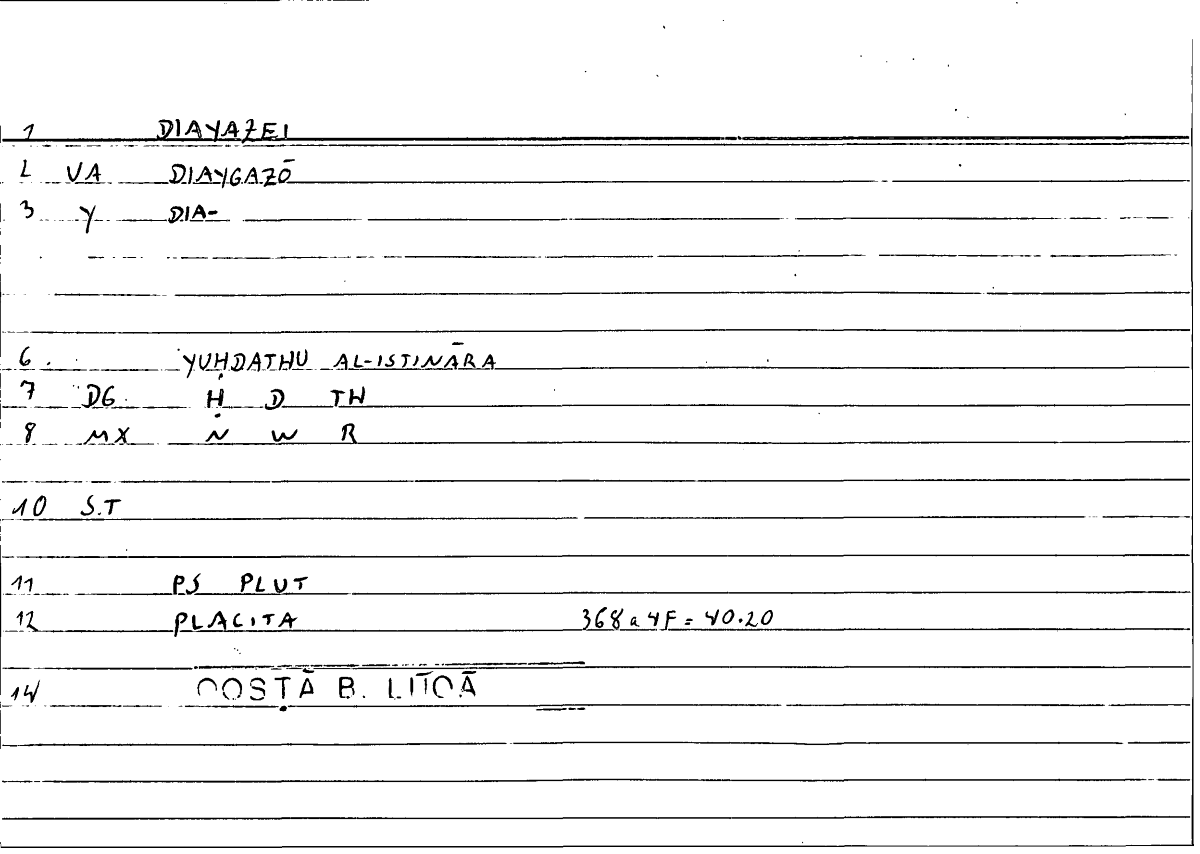 1 DIAYAZEI
2 VA DIAYGAZŌ
3 Y DIA-
6. YUḤDATHU AL-ISTINĀRA
7 DG. Ḥ D TH
8 MX N W R
10 S.T
11 PS PLUT
12 PLACITA 368 a 4F = 40.20
14 QOSṬĀ B. LŪQĀ